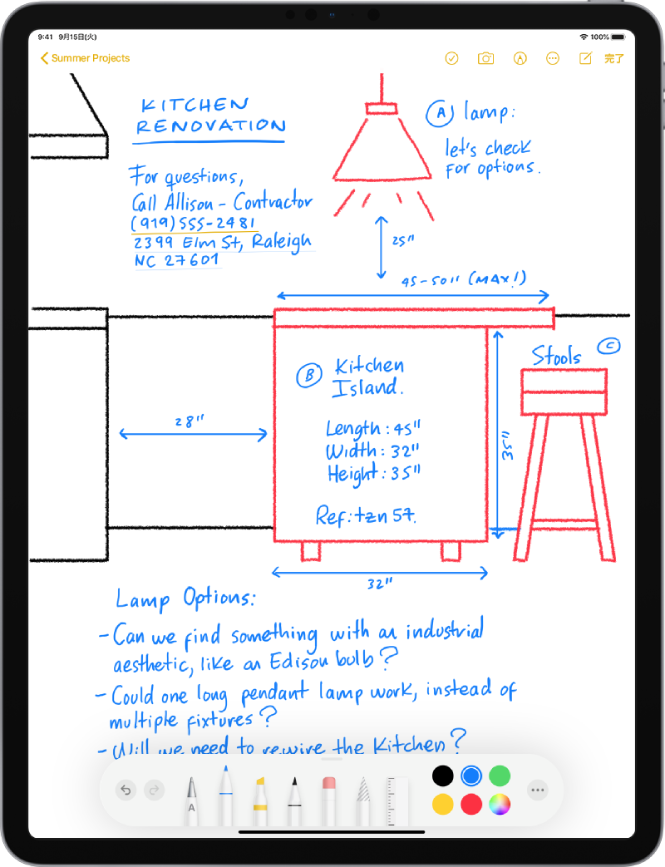 9:41 9月15日(火)
100%
Summer Projects
完了
KITCHEN
RENOVATION
For questions,
Call Allison - Contractor
(919)555-2481
2399 Elm St, Raleigh
NC 27601
A lamp:
let's check
for options.
25"
45-50" (MAX!)
28"
B Kitchen
Island.
Length: 45"
Width: 32"
Height: 35"
Ref: tzn 57.
35"
Stools C
32"
Lamp Options:
- Can we find something with an industrial
aesthetic, like an Edison bulb?
- Could one long pendant lamp work, instead of
multiple fixtures?
- Will we need to rewire the Kitchen?
A